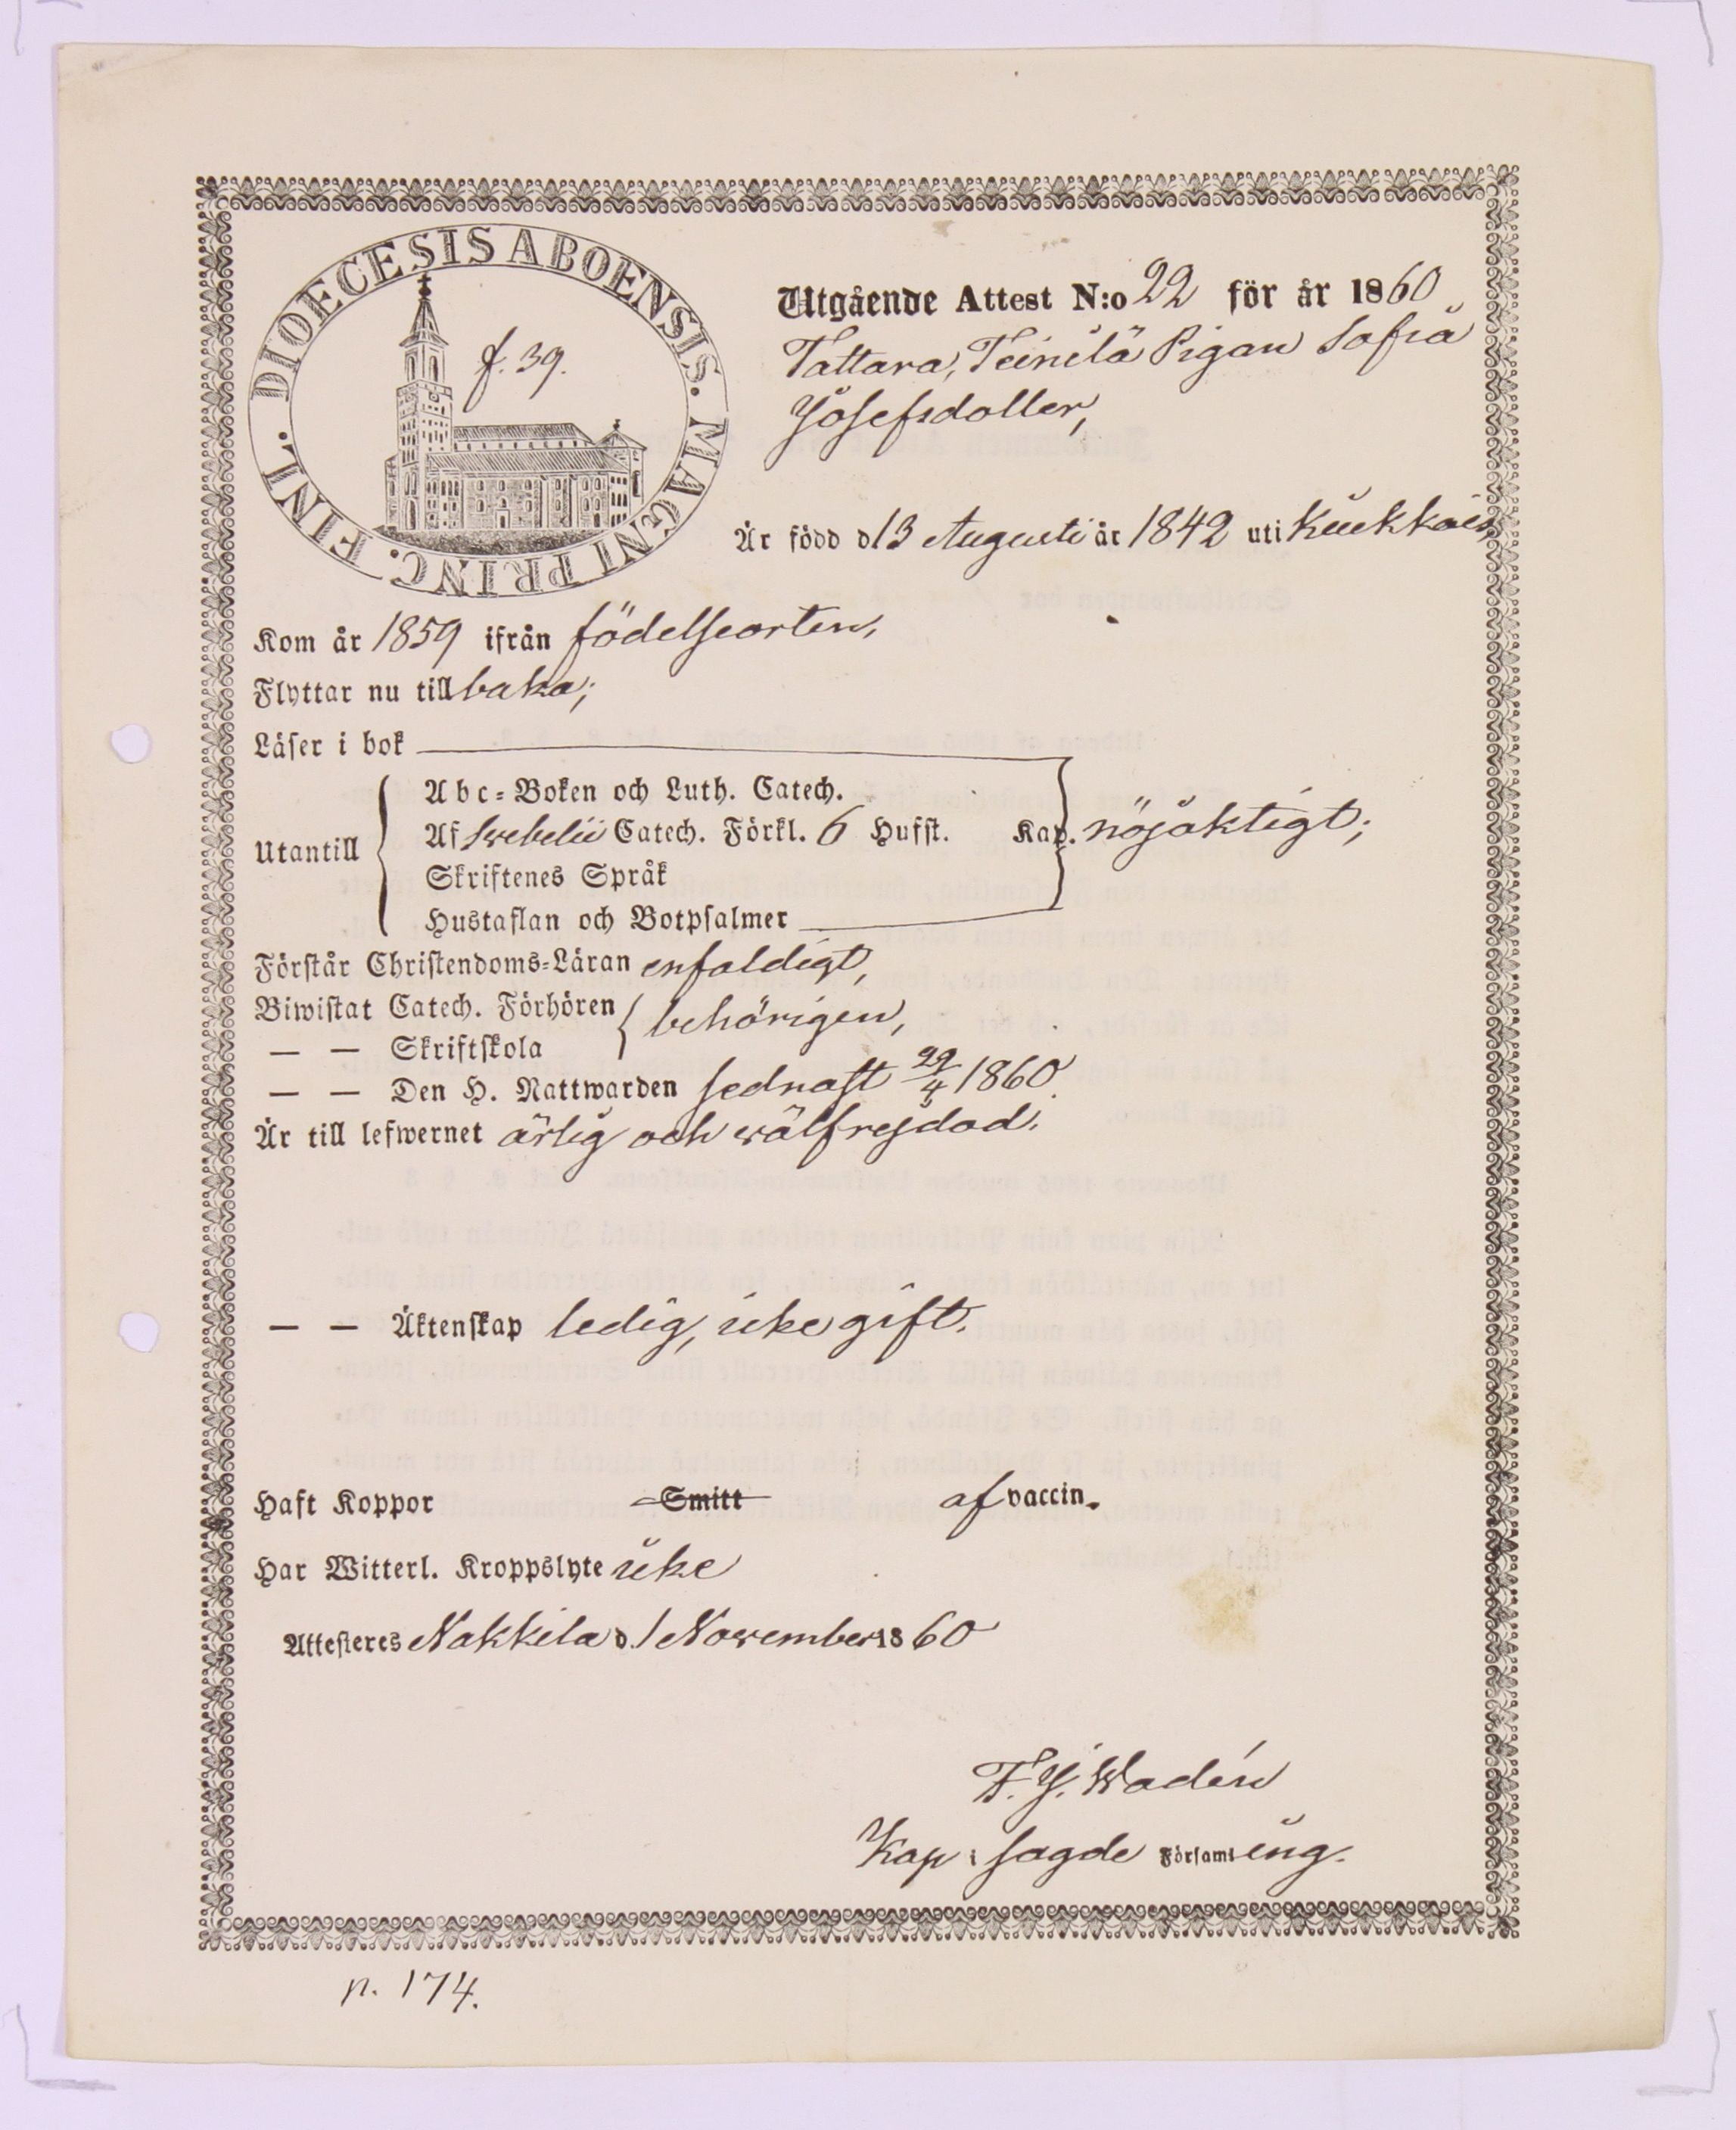 DIOECESIS ABOENSIS. MAGNI PRINC. FINL.
f. 39.
Utgående Attest N:o 22 för år 1860
Tattara, Teinilä Pigan Sofia
Josefsdotter,
Är född d 13 Augusti år 1842 uti Kiukkais,
Kom år 1859 ifrån födelseorten,
Flyttar nu tillbaka;
Läser i bok
Utantill
Abc-Boken och Luth. Catech.
Af Swebelii Catech. Förkl. 6 Hufst. Kap. nöjaktigt;
Skriftenes Språk
Hustaflan och Botpsalmer
Förstår Christendoms-Läran enfaldigt,
Biwistat Catech. Förhören behörigen,
— — Skriftskola
— — Den H. Nattwarden sednast 22/4 1860.
Är till lefwernet ärlig och wälfrejdad.
— — Äktenskap ledig, icke gift.
Haft Koppor Smitt af vaccin.
Har Witterl. Kroppslyte icke
Attesteres Nakkila d. 1 November 1860
F. J. Wadén
Kap. i sagde Församling.
p. 174.